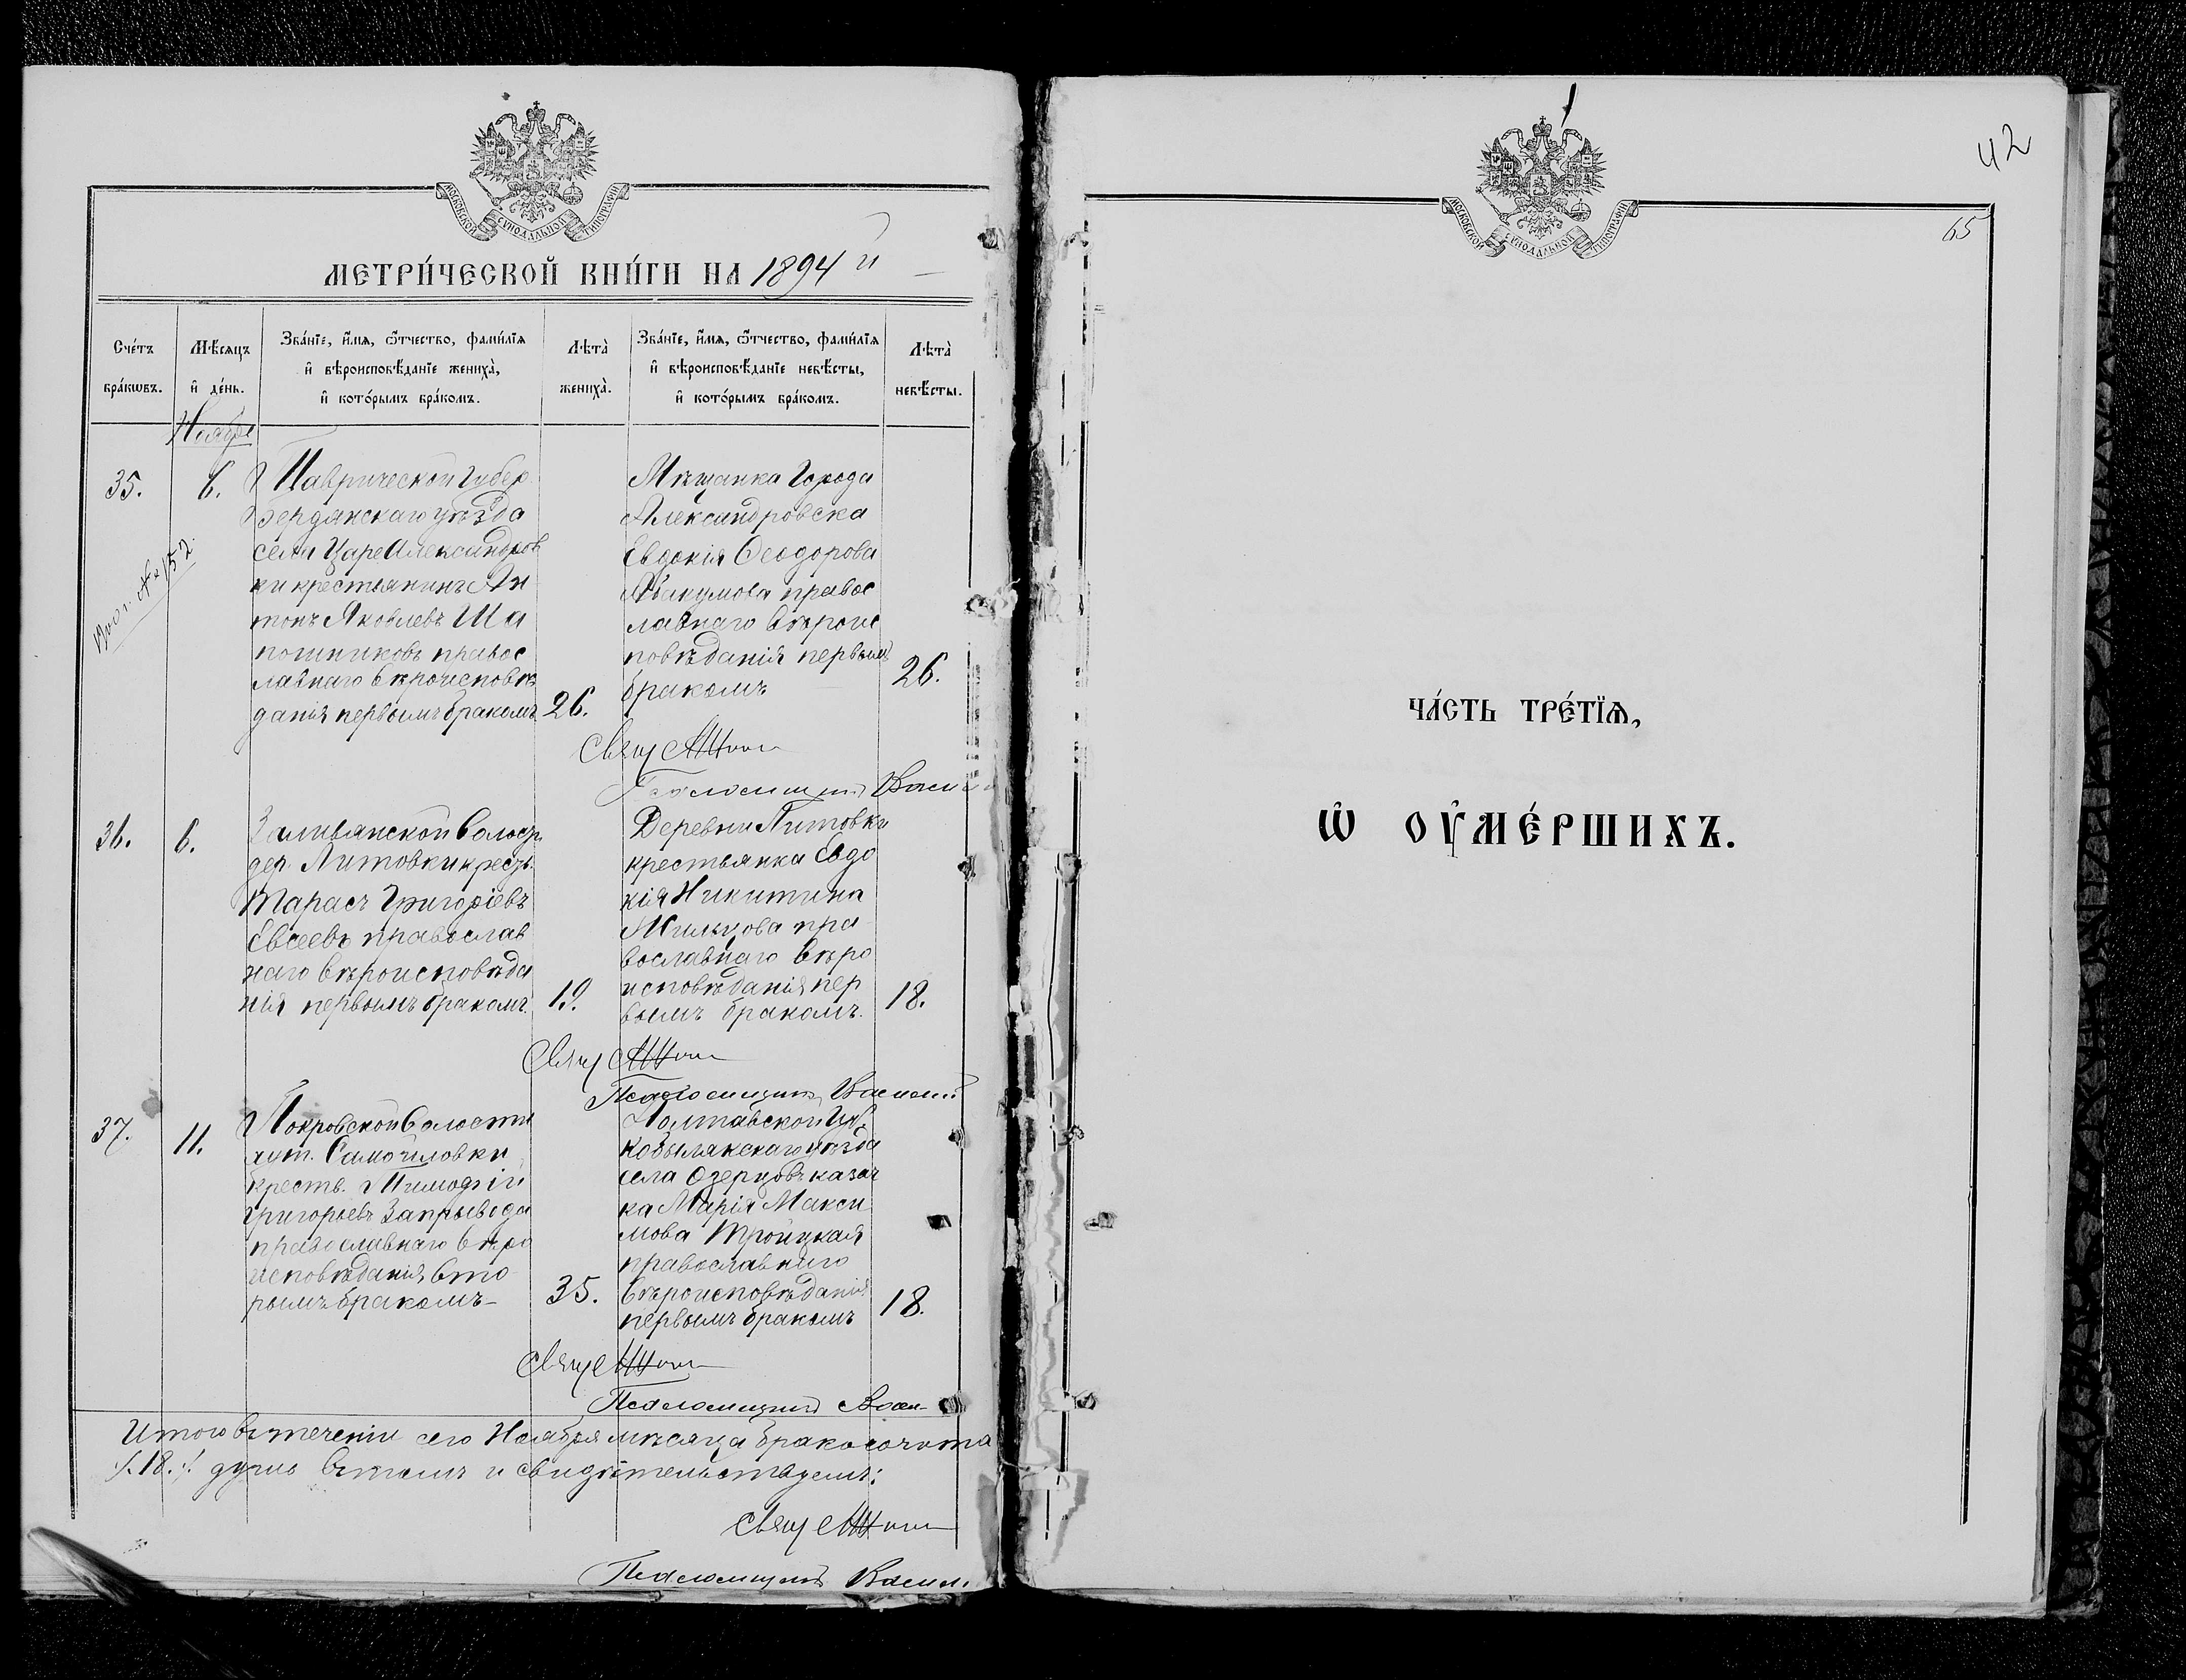 МОСКОВСКОЙ СѴНОДАЛЬНОЙ ТИПОГРАФІИ
МЕТРИ́ЧЕСКОЙ КНИ́ГИ НА 1894 й
Сче́тъ бра́кѡвъ.
Мѣ́сяцъ и҆ де́нь.
Зва́нїе, и҆́мѧ, ѻ҆́тчество, фами́лїѧ
и҆ вѣроисповѣ́данїе жениха̀,
и҆ кото́рымъ бра́комъ.
Лѣта̀ жениха̀.
Зва́нїе, и҆́мѧ, ѻ҆́тчество, фами́лїѧ
и҆ вѣроисповѣ́данїе невѣ́сты,
и҆ кото́рымъ бра́комъ.
Лѣта̀ невѣ́сты.
Ноября
35.
6.
Таврической Губер
Бердянскаго уѣзда
села Цареалександров
ки крестьянинъ Ан
тонъ Яковлевъ Ша
пошниковъ правос
лавнаго вѣроисповѣ
данія первымъ бракомъ
26.
Мѣщанка Города
Александровска
Евдокія Ѳеодорова
Абакумова правос
лавнаго вѣроис
повѣданія первымъ
бракомъ
26.
№ 152.
Свящ
Псаломщикъ Васи
36.
6.
Заливянской Волос.
дер. Литовки крест.
Тарасъ Григоріевъ
Евсеевъ православ
наго вѣроисповѣда
нія первымъ бракомъ.
19.
Деревни Литовки
крестьянка Евдо
кія Никитина
Милькова пра
вославнаго вѣро
исповѣданія пер
вымъ бракомъ.
18.
Свящ
Псаломщикъ Василій
37.
11.
Покровской Волости
хут. Самойловки
крестъ. Тимофей
Григорьевъ
православнаго вѣро
исповѣданія, вто
рымъ бракомъ
35.
Полтавской Губ.
Кобылякскаго уѣзда
села Озерцовъ казач
ка Марія Макси
мова Троицкая
православнаго
вѣроисповѣданія
первымъ бракомъ
18.
Свящ
Псаломщикъ Васи
Итого въ теченіи сего Ноября мѣсяца бракосочета
/.18./. душъ Въ томъ и свидѣтельствуемъ:
Свящ
Псаломщикъ Васил.
МОСКОВСКОЙ СѴНОДАЛЬНОЙ ТИПОГРАФІИ
42
65
ЧА́СТЬ ТРЕ́ТЇѦ,
Ѡ҆ ОУ҆МЕ́РШИХЪ.